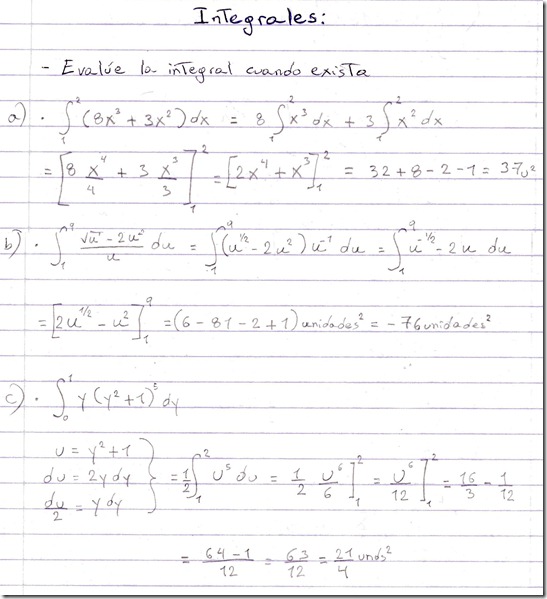 Integrales:
- Evalúe la integral cuando exista
a) · ∫₁² (8x³ + 3x²) dx = 8 ∫₁² x³ dx + 3 ∫₁² x² dx
= [8 x⁴/4 + 3 x³/3]₁² = [2x⁴ + x³]₁² = 32 + 8 - 2 - 1 = 37u²
b) · ∫₁⁹ (√u - 2u²)/u du = ∫₁⁹ (u^(1/2) - 2u²) u⁻¹ du = ∫₁⁹ u^(-1/2) - 2u du
= [2u^(1/2) - u²]₁⁹ = (6 - 81 - 2 + 1) unidades² = -76 unidades²
c) · ∫₀¹ y (y² + 1)⁵ dy
u = y² + 1
du = 2y dy } = 1/2 ∫₁² u⁵ du = 1/2 u⁶/6 ]₁² = u⁶/12 ]₁² = 16/3 - 1/12
du/2 = y dy
= (64 - 1)/12 = 63/12 = 21/4 unds²